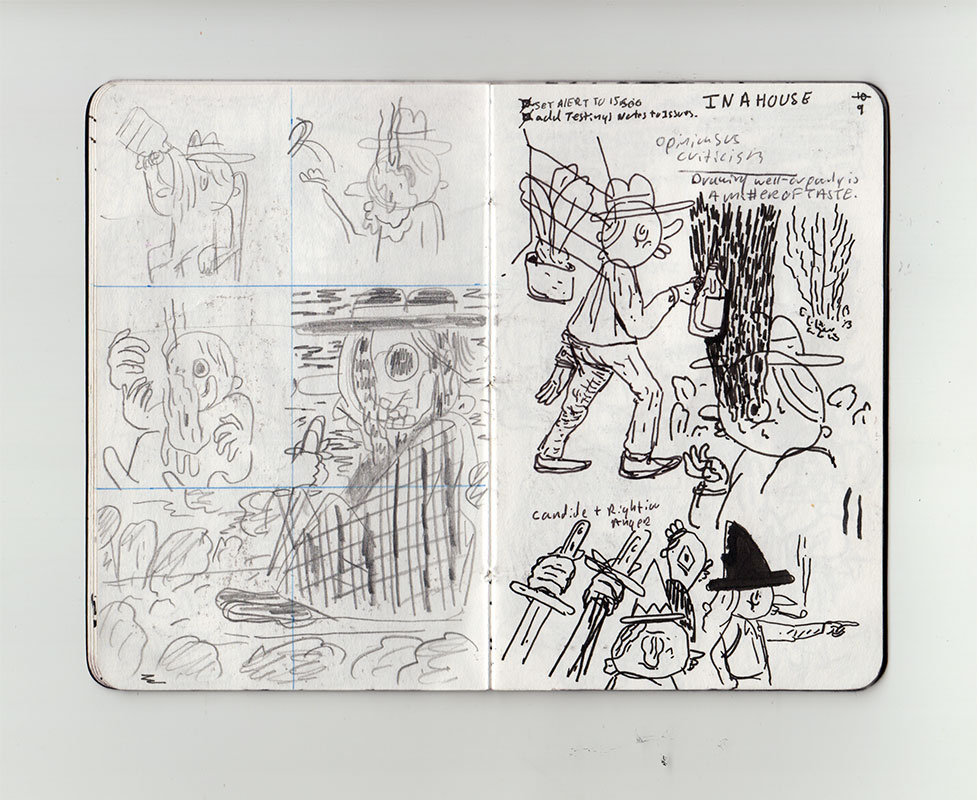 SET ALERT TO 15,500
add Testing Notes to Issues.
IN A HOUSE
10
9
opinions vs
criticism
Drawing well or poorly is
A MATTER OF TASTE.
candide + Righteous
Anger